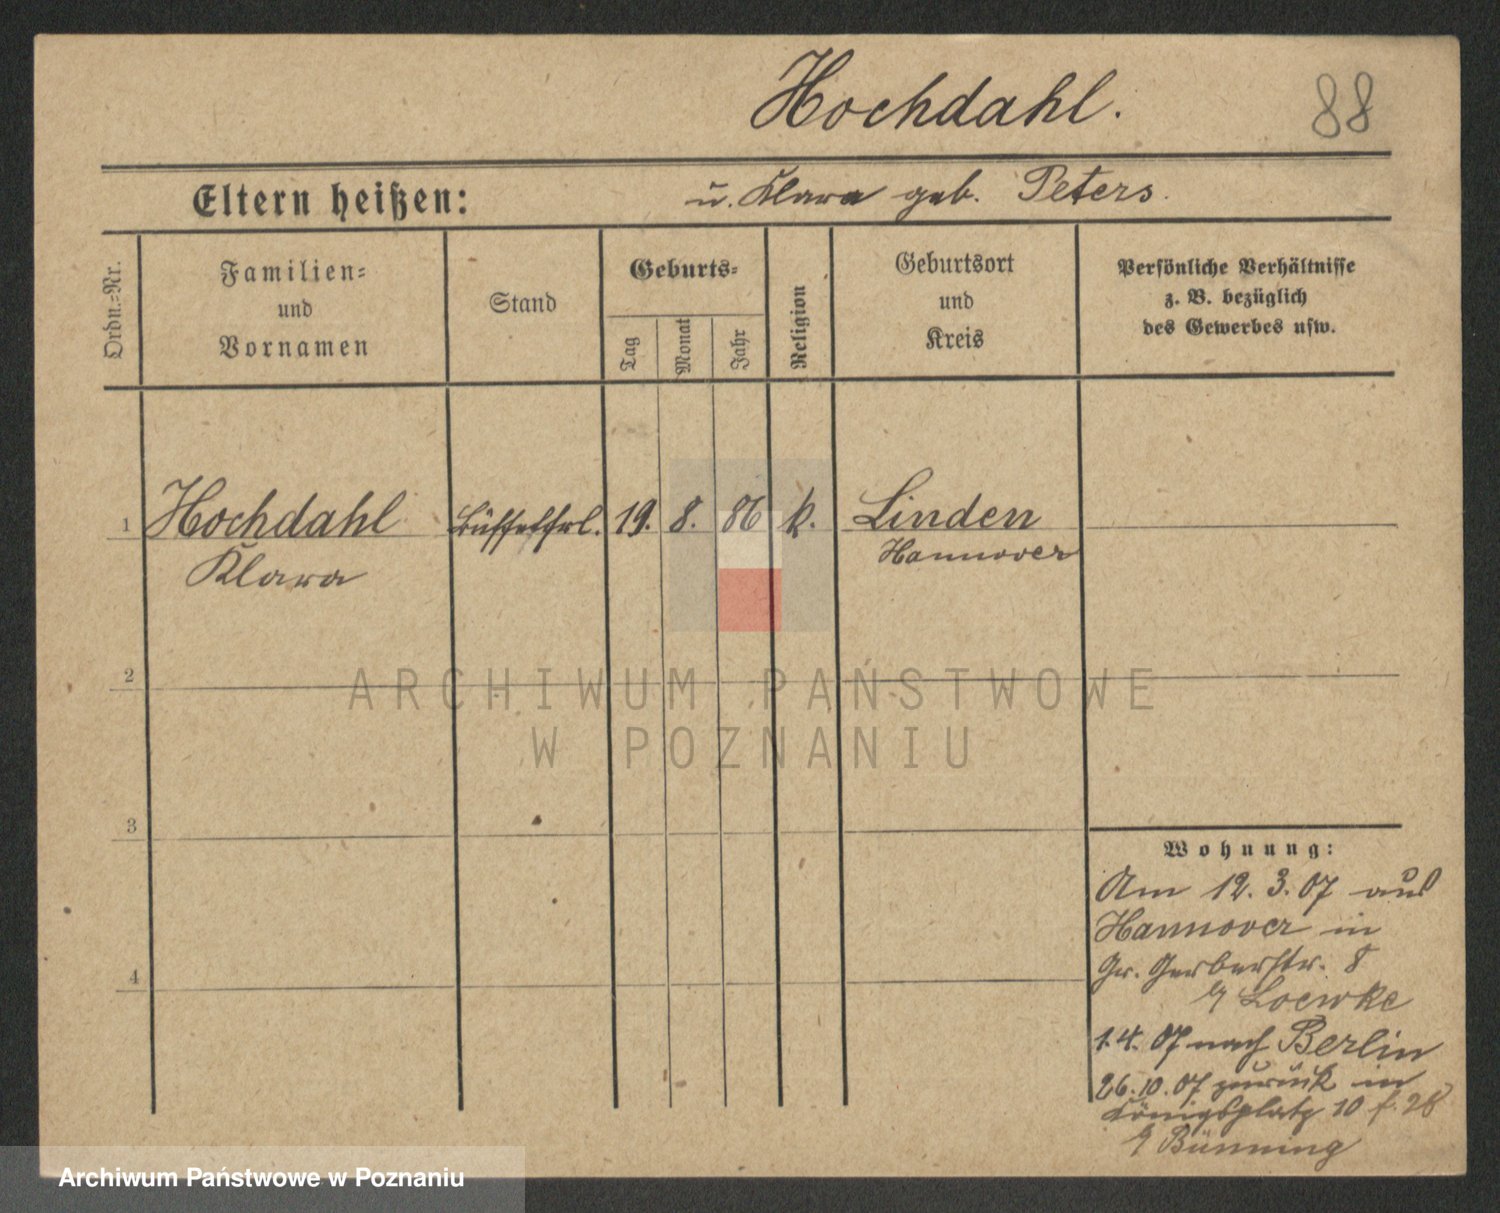 Hochdahl.
88
Eltern heißen:
u. Klara geb. Peters.
Ordn.-Nr.
Familien-
und
Vornamen
Stand
Geburts-
Tag
Monat
Jahr
Religion
Geburtsort
und
Kreis
Persönliche Verhältnisse
z. B. bezüglich
des Gewerbes usw.
1 Hochdahl Büffetfrl. 19. 8. 86 k. Linden
Klara Hannover
2
3
4
Wohnung:
Am 12. 3. 07 aus
Hannover in
Gr. Gerberstr. 8
b/ Loewke
1.4. 07 nach Berlin
26.10.07 zurück in
Königsplatz 10
b/ Bünning
ARCHIWUM PAŃSTWOWE
W POZNANIU
Archiwum Państwowe w Poznaniu